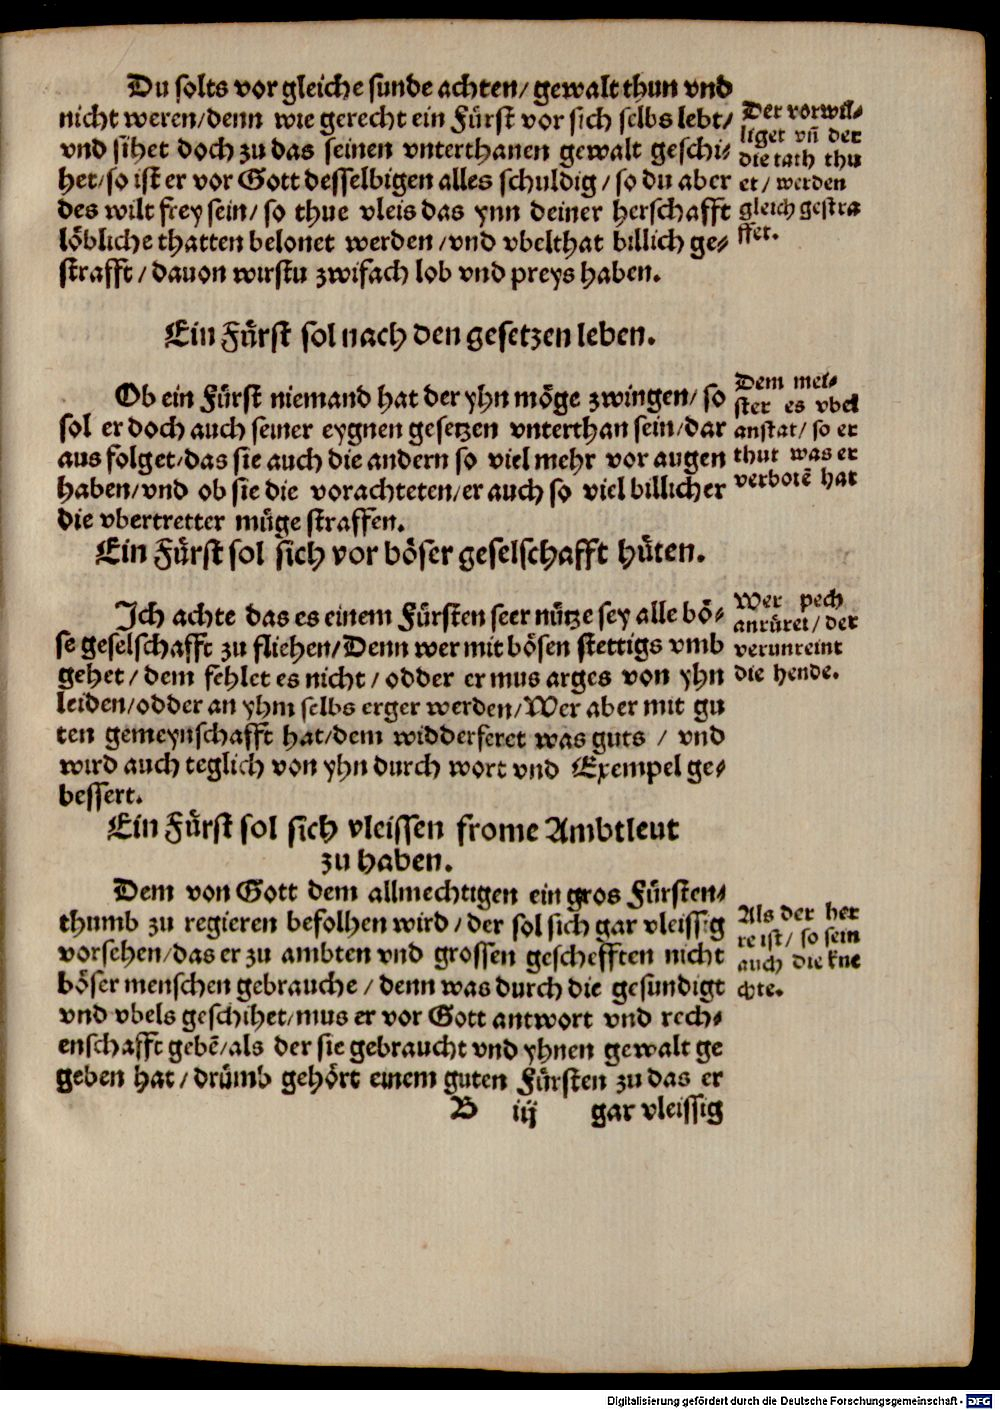 Du solts vor gleiche sunde achten/ gewalt thun vnd
nicht weren/denn wie gerecht ein Fürst vor sich selbs lebt/
vnd sihet doch zu das seinen vnterthanen gewalt geschi-
het/so ist er vor Gott desselbigen alles schuldig/ so du aber
des wilt frey sein/ so thue vleis das ynn deiner herschafft
löbliche thatten belonet werden/vnd vbelthat billich ge-
strafft/ dauon wirstu zwifach lob vnd preys haben.
Der vorwil-
liget vñ der
die tath thu
et/ werden
gleich gestra
ffet.
Ein Fürst sol nach den gesetzen leben.
Ob ein Fürst niemand hat der yhn möge zwingen/ so
sol er doch auch seiner eygnen gesetzen vnterthan sein/dar
aus folget/das sie auch die andern so viel mehr vor augen
haben/vnd ob sie die vorachteten/er auch so viel billicher
die vbertretter müge straffen.
Dem mei-
ster es vbel
anstat/ so er
thut was er
verbotẽ hat
Ein Fürst sol sich vor böser geselschafft hüten.
Ich achte das es einem Fürsten seer nütze sey alle bö-
se geselschafft zu fliehen/Denn wer mit bösen stettigs vmb
gehet/ dem fehlet es nicht/ odder er mus arges von yhn
leiden/odder an yhm selbs erger werden/Wer aber mit gu
ten gemeynschafft hat/dem widderferet was guts / vnd
wird auch teglich von yhn durch wort vnd Exempel ge-
bessert.
Wer pech
anrüret/ der
verunreint
die hende.
Ein Fürst sol sich vleissen frome Ambtleut
zu haben.
Dem von Gott dem allmechtigen ein gros Fürsten-
thumb zu regieren befolhen wird/ der sol sich gar vleissig
vorsehen/das er zu ambten vnd grossen geschefften nicht
böser menschen gebrauche/ denn was durch die gesundigt
vnd vbels geschihet/mus er vor Gott antwort vnd rech-
enschafft gebẽ/als der sie gebraucht vnd yhnen gewalt ge
geben hat/ drümb gehört einem guten Fürsten zu das er
Als der her
re ist/ so sein
auch die kne
chte.
B iij gar vleissig
Digitalisierung gefördert durch die Deutsche Forschungsgemeinschaft - DFG